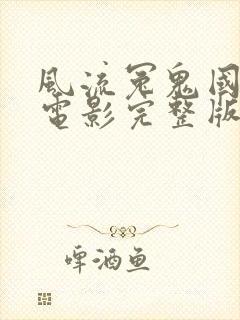 風流冤鬼國
電影完整版
啤酒鱼